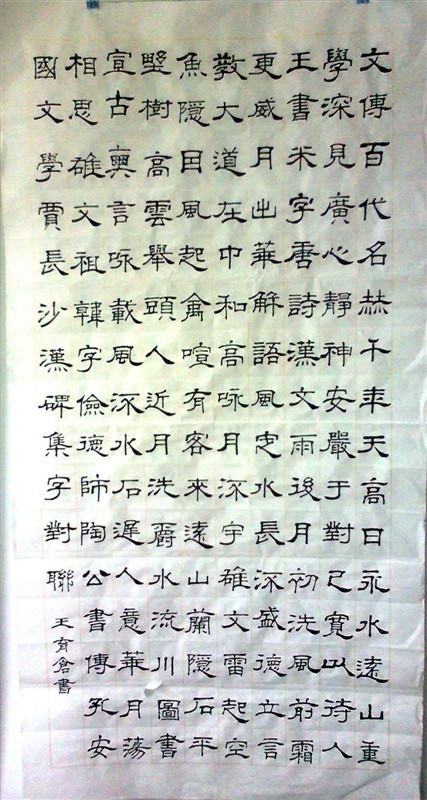 文傳百代名赫千年天高日永水遠山重
學深見廣心靜神安嚴于對己寬以待人
王書米字唐詩漢文雨後月初洗風前霜
更威月出華解語風定水長深盛德立言
教大道在中和高咏月深宇雄文雷起空
魚隱日風起禽喧有客來遠山蘭隱石平
野樹高雲舉頭人近月洗爵水流川圖書
宣古奧言咏載風深水石遲人意華月蕩
相思雄文祖韓字儉德師陶公書傳孔安
國文學賈長沙漢碑集字對聯
王育倉書